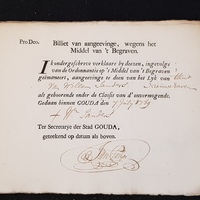 Pro Deo. Billiet van aangeevinge, wegens het
Middel van 't Begraven.
Ik ondergeschreve verklaare by deezen, ingevolge
van de Ordonnantie op 't Middel van 't Begraven
geëmaneert, aangeevinge te doen van het Lyk van
Willem
als gehoorende onder de Classis van d'onvermogende.
Gedaan binnen GOUDA den 7 July
Ter Secretarye der Stad GOUDA,
geteekend op datum als boven.